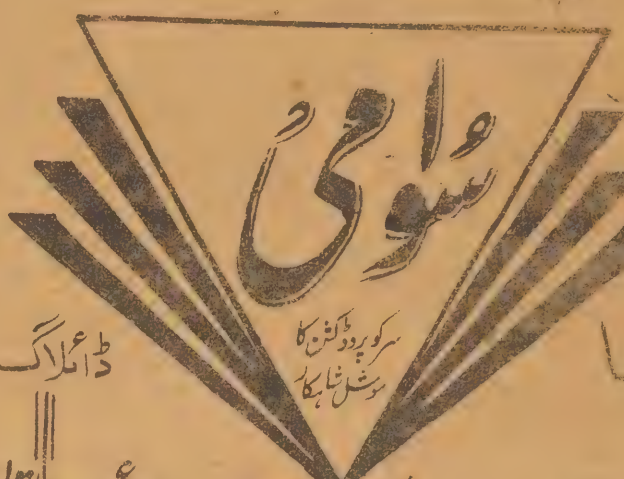 سُوامی
سرکو پروڈکشن کا
سوشل شاہکار
ڈائلاگ